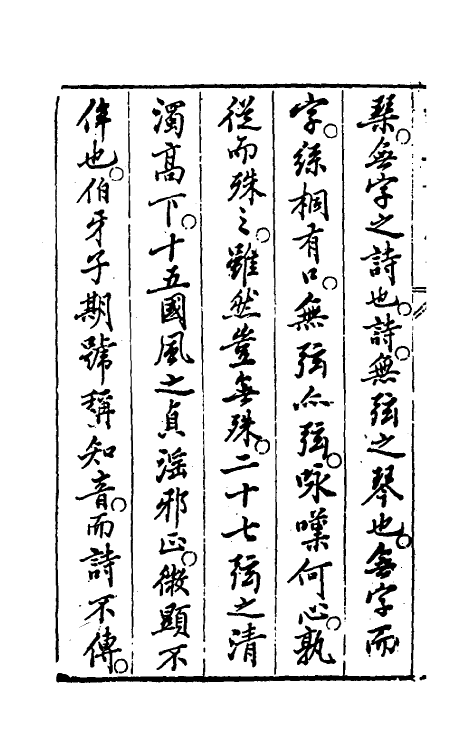 琴。無字之詩也。詩。無弦之琴也。無字而
字。絲桐有口。無弦而弦。咏嘆何心。孰
從而殊之。雖然豈無殊。二十七弦之清
濁高下。十五國風之貞淫邪正。微顯不
侔也。伯牙子期號稱知音。而詩不傳。